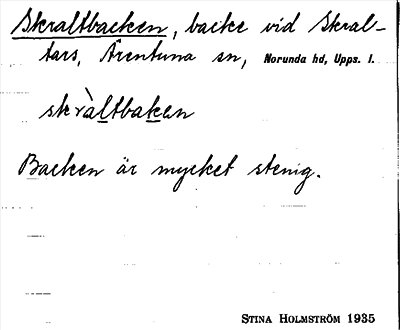 Skraltbacken, backe vid Skral-
tars, Ärentuna sn, Norunda hd, Upps. l.
skràltbakɛn
Backen är mycket stenig.
STINA HOLMSTRÖM 1935